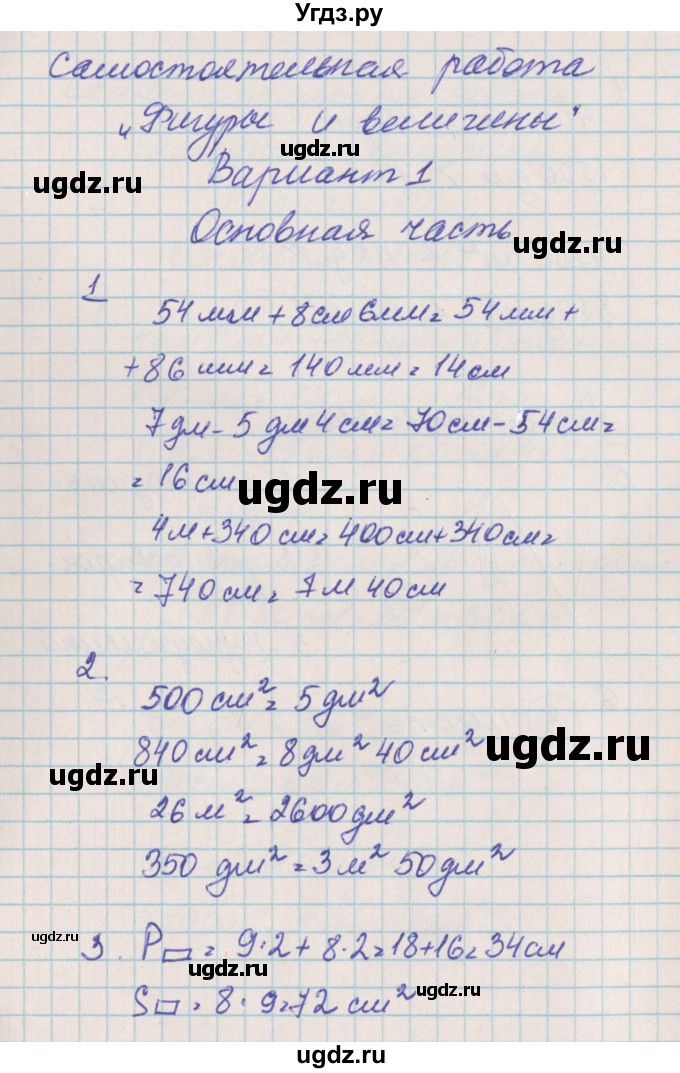 Угдз.ру
Самостоятельная работа
„Фигуры и величины"
ugdz.ru
ugdz.ru
Вариант 1
Основная часть
ugdz.ru
1
54 мм + 8 см 6 мм = 54 мм +
+ 86 мм = 140 мм = 14 см
7 дм - 5 дм 4 см = 70 см - 54 см =
= 16 см
ugdz.ru
4 м + 340 см = 400 см + 340 см =
= 740 см = 7 м 40 см
2.
500 см² = 5 дм²
840 см² = 8 дм² 40 см²
ugdz.ru
ugdz.ru
26 м² = 2600 дм²
350 дм² = 3 м² 50 дм²
ugdz.ru
3. P▭ = 9·2 + 8·2 = 18 + 16 = 34 см
ugdz.ru
S▭ = 8 · 9 = 72 см²
ugdz.ru
ugdz.ru